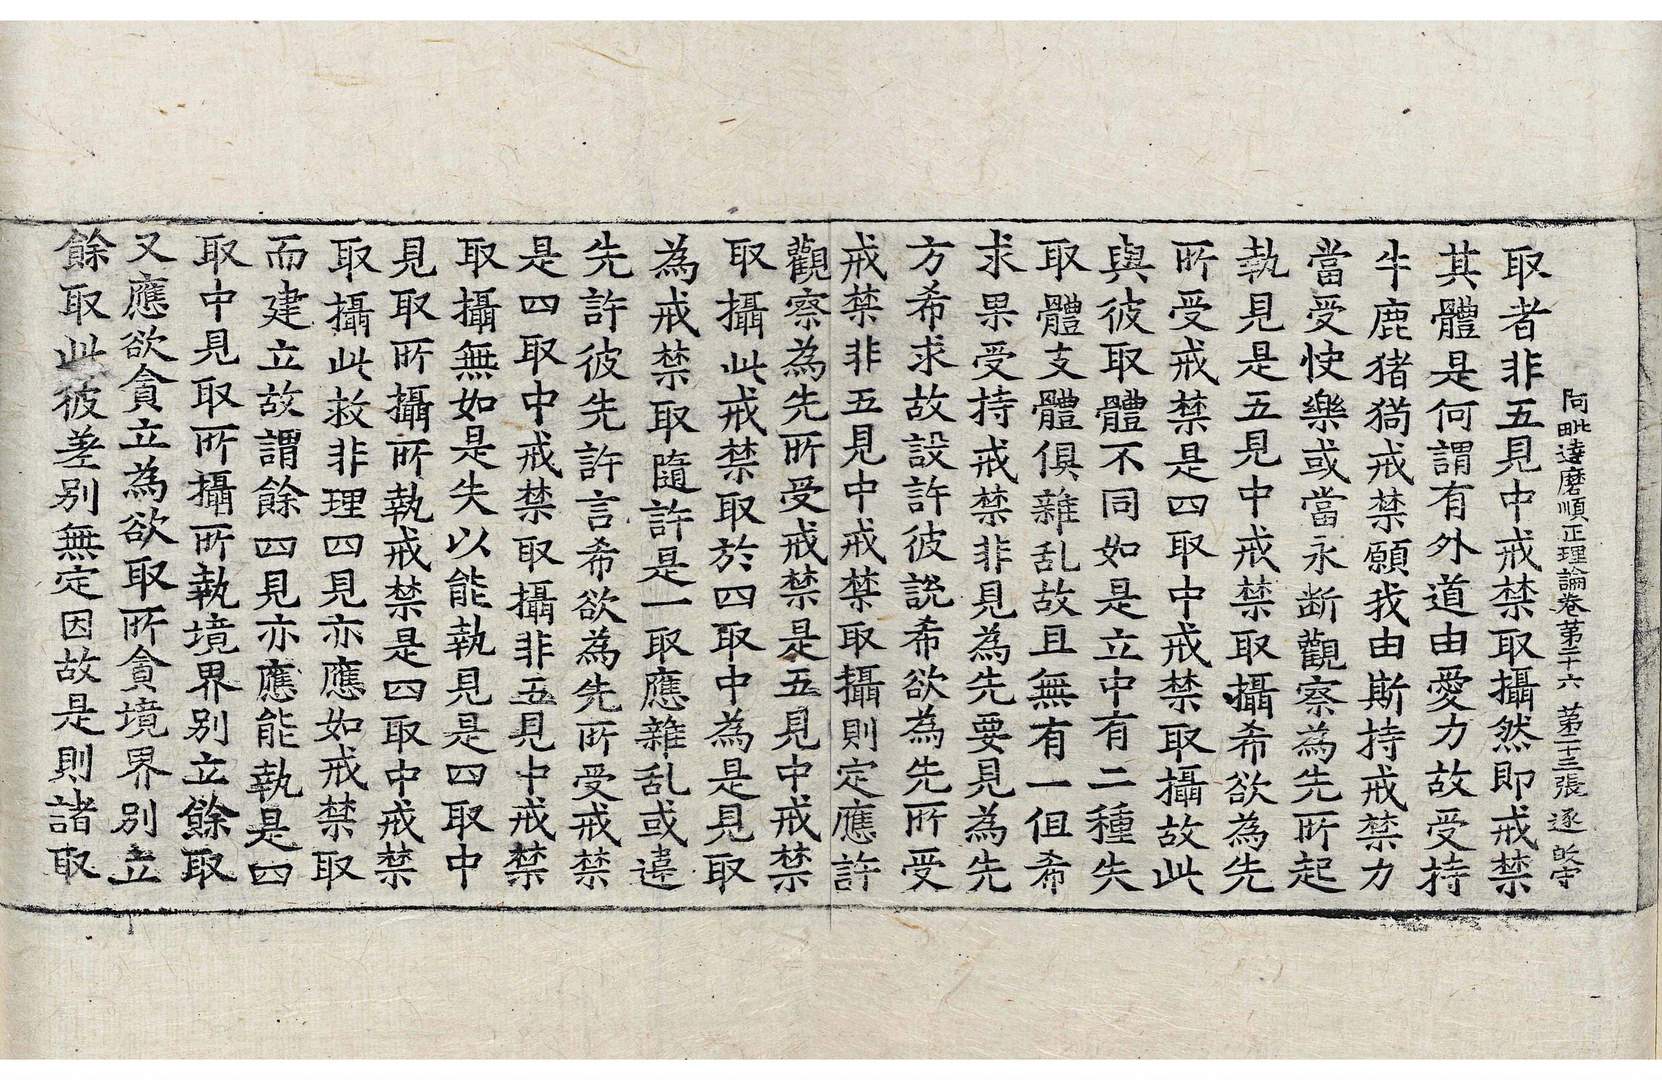 阿毗達磨順正理論卷第二十六 第二十三張 逐
取者非五見中戒禁取攝然即戒禁
其體是何謂有外道由愛力故受持
牛鹿猪猫戒禁願我由斯持戒禁力
當受快樂或當永断觀察為先所起
執見是五見中戒禁取攝希欲為先
所受戒禁是四取中戒禁取攝故此
與彼取體不同如是立中有二種失
取體支體俱雜乱故且無有一但希
求果受持戒禁非見為先要見為先
方希求故設許彼説希欲為先所受
戒禁非五見中戒禁取攝則定應許
觀察為先所受戒禁是五見中戒禁
取攝此戒禁取於四取中為是見取
為戒禁取隨許是一取應雜乱或違
先許彼先許言希欲為先所受戒禁
是四取中戒禁取攝非五見中戒禁
取攝無如是失以能執見是四取中
見取所攝所執戒禁是四取中戒禁
取攝此救非理四見亦應如戒禁取
而建立故謂餘四見亦應能執是四
取中見取所攝所執境界別立餘取
又應欲貪立為欲取所貪境界別立
餘取此彼差別無定因故是則諸取